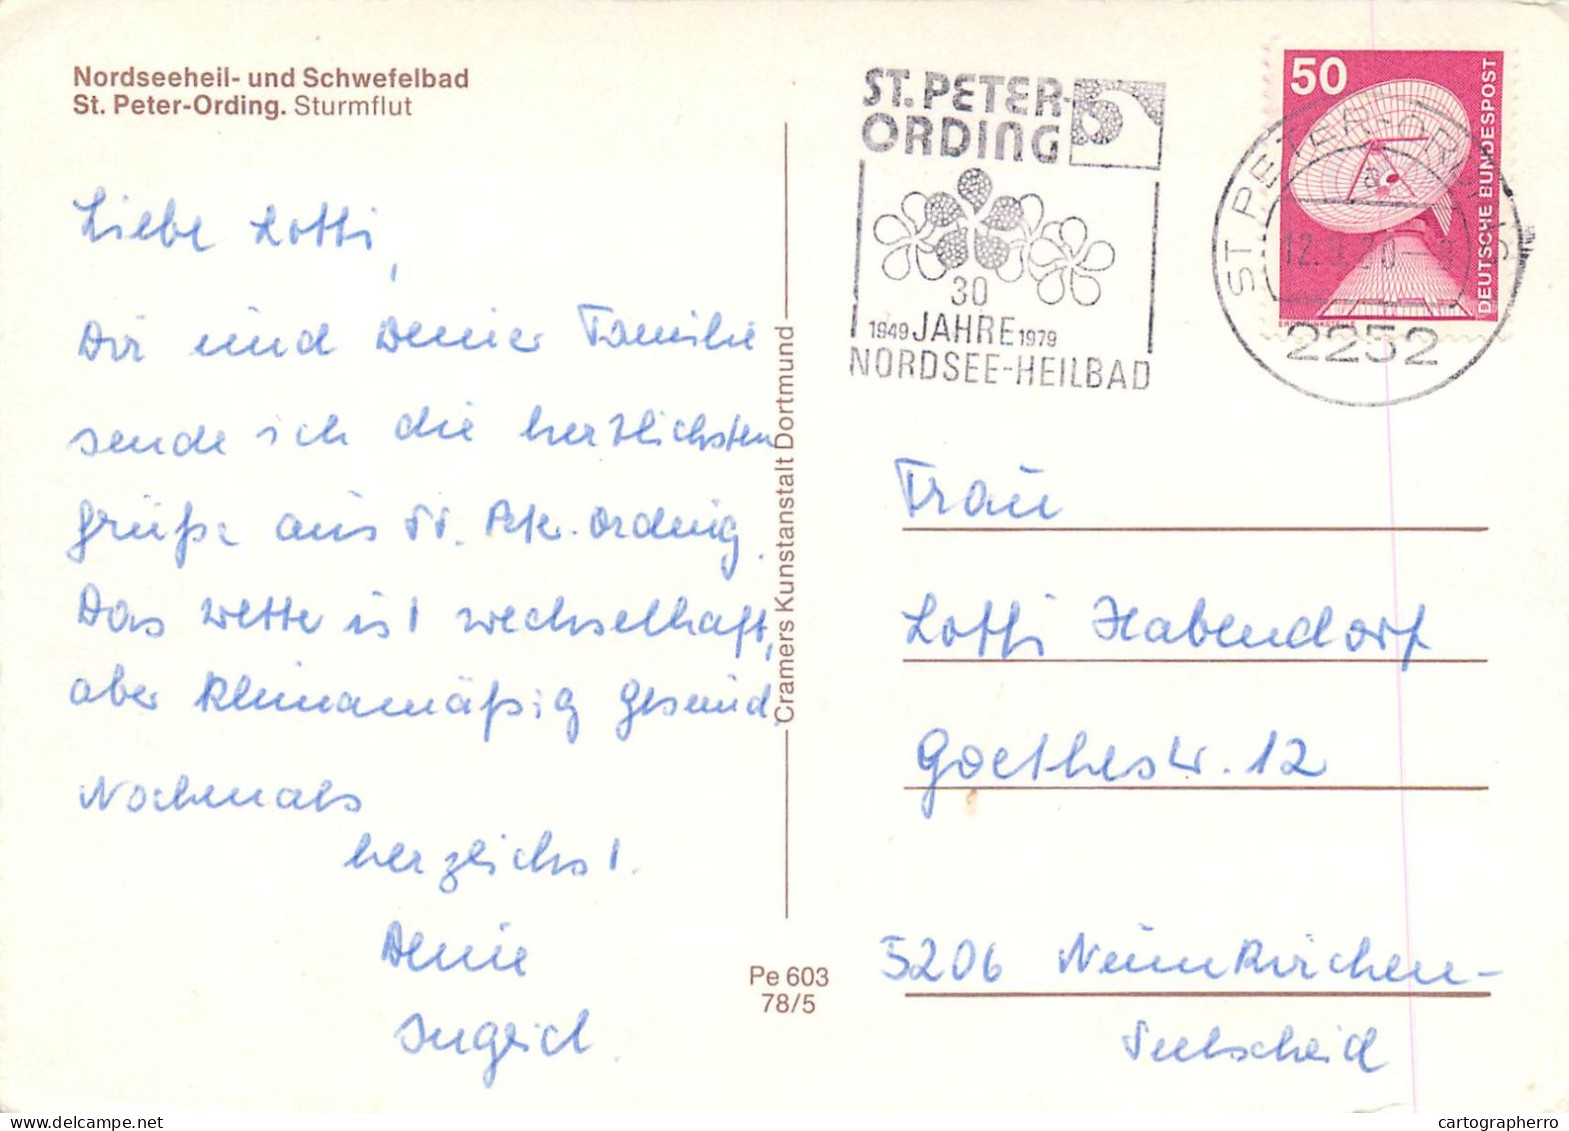 Nordseeheil- und Schwefelbad
St. Peter-Ording. Sturmflut
Liebe Lotti,
Dir und Deiner Familie
sende ich die herzlichsten
Grüße aus St. Pet. Ording.
Das Wetter ist wechselhaft,
aber klimamäßig gesund.
Nochmals
herzlichst.
Deine
Ingrid
Cramers Kunstanstalt Dortmund
Pe 603
78/5
ST. PETER-
ORDING
30
1949 JAHRE 1979
NORDSEE-HEILBAD
50
DEUTSCHE BUNDESPOST
ST. PETER-ORDING
2252
Frau
Lotti Habendorf
Goethestr. 12
5206 Neunkirchen-
Seelscheid
cartographerro